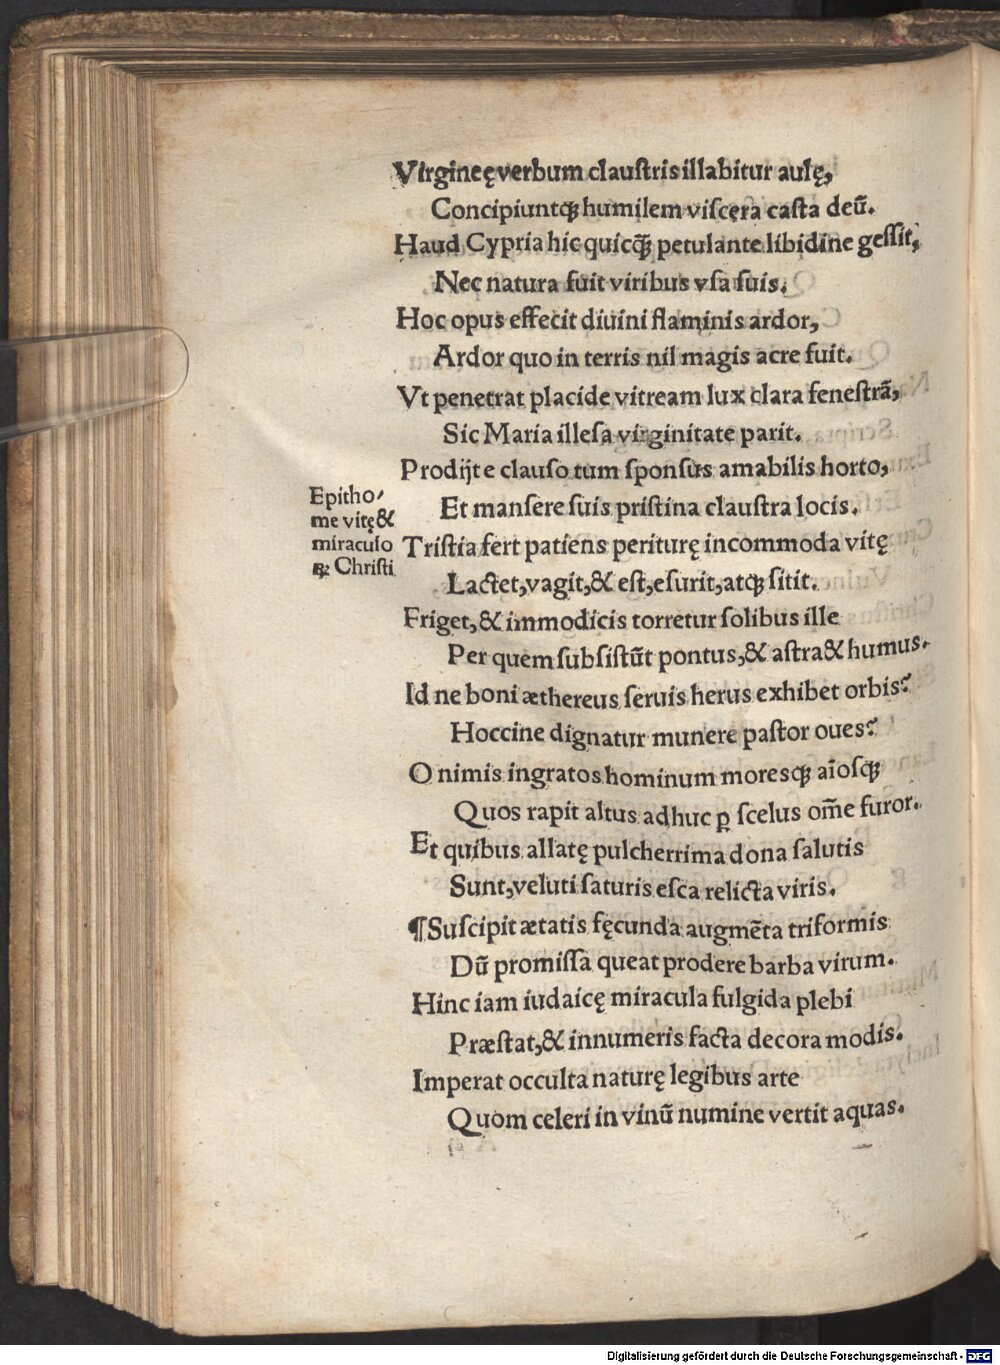 Virgineę verbum clauſtris illabitur aulę,
Concipiuntq́; humilem viſcera caſta deū.
Haud Cypria hic quicq̄; petulante libidine geſſit,
Nec natura fuit viribus vſa ſuis.
Hoc opus effecit diuini flaminis ardor,
Ardor quo in terris nil magis acre fuit.
Vt penetrat placide vitream lux clara feneſtrā,
Sic Maria illeſa virginitate parit.
Prodijt e clauſo tum ſponſus amabilis horto,
Et manſere ſuis priſtina clauſtra locis.
Epitho/
me vitę &
miraculo
ꝝ Chriſti
Triſtia fert patiens periturę incommoda vitę
Lactet, vagit, & eſt, eſurit, atq; ſitit.
Friget, & immodicis torretur ſolibus ille
Per quem ſubſiſtūt pontus, & aſtra & humus.
Id ne boni æthereus ſeruis herus exhibet orbis?
Hoccine dignatur munere paſtor oues?
O nimis ingratos hominum moresq́; aīoſq́;
Quos rapit altus adhuc ꝑ ſcelus om̄e furor.
Et quibus allatę pulcherrima dona ſalutis
Sunt, veluti ſaturis eſca relicta viris.
¶ Suſcipit ætatis fęcunda augmēta triformis
Dū promiſſa queat prodere barba virum.
Hinc iam iudaicę miracula fulgida plebi
Præſtat, & innumeris facta decora modis.
Imperat occulta naturę legibus arte
Quom celeri in vinū numine vertit aquas.
Digitalisierung gefördert durch die Deutsche Forschungsgemeinschaft - DFG